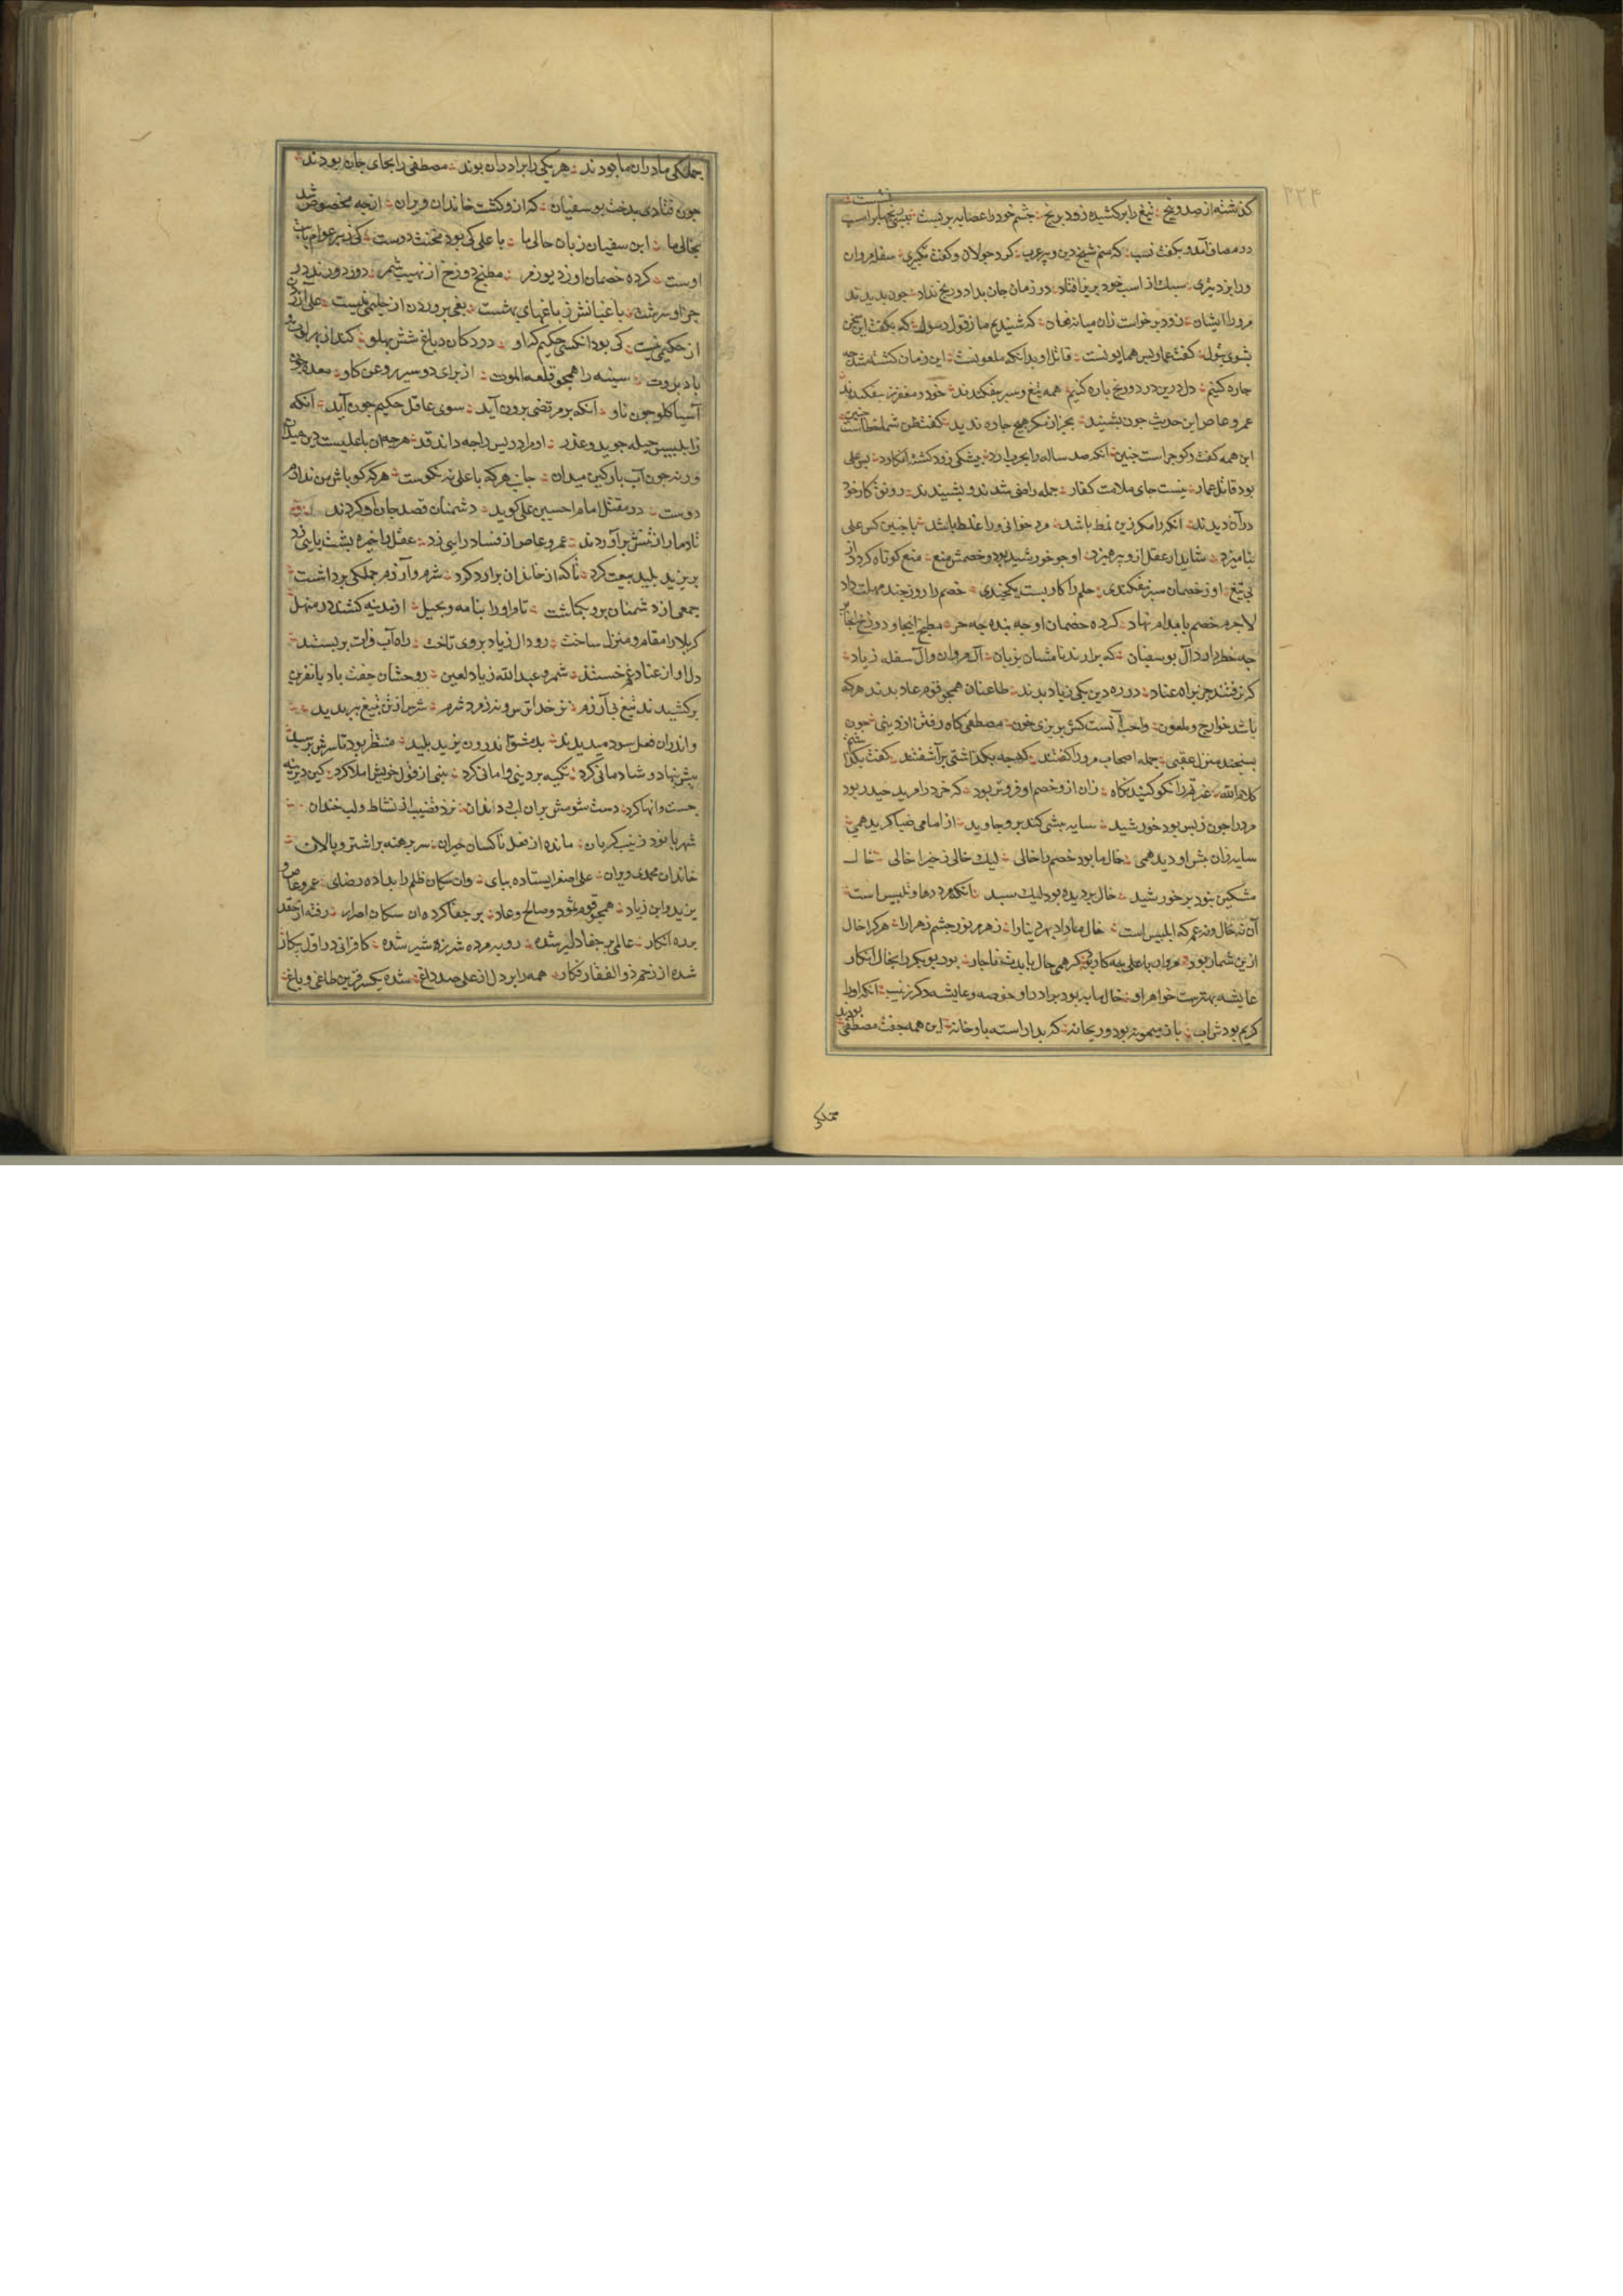 ۲۲۴
كذشته از صد و پنج ؛ تیغ را بر کشیده زود برنج ؛ چشم خود را عصابه بر بست ؛
در مصاف آمد و بکفت نسب ؛ که منم شیخ دین و پیر عرب ؛ کرد جولان و کفت تکبیری ؛
سبک از اسب خود بزیر افتاد ؛ در زمان جان بداد و رنج نداد ؛ جون بدیدند
مرو را ایشان ؛ زود برخواست زان میانه فغان ؛ که شنیدیم ما ز قول رسول ؛ که بکفت این سخن
بشوی بتول ؛ کفت عمار بس همایونست ؛ قاتل او بدانکه ملعونست ؛ این زمان کشته شد جه
جاره کنیم ؛ دل درین درد و رنج باره کنیم ؛ همه تیغ و سبر بیفکندند ؛ خود و مغفر ز سر بیفکندند
عمرو عاص این حدیث جون بشنید ؛ بجز از مکر هیج جاره ندید ؛ کفت ظن شما خطاست جنین
این همه کفت و کو جراست جنین ؛ انکه صد ساله را بحرب ارد ؛ بیشکی زود کشته انکارد ؛ بس علی
بود قاتل عمار ؛ نیست جای ملامت کفار ؛ جمله راضی شدند و بشنیدند ؛ رونق کار خود
در آن دیدند ؛ انکه را مکر زین نمط باشد ؛ مرد خوانی ورا غلط باشد ؛ با جنین کس علی
نیامیزد ؛ شاید ار عقل ازو بپرهیزد ؛ او جو خورشید بود و خصمش میغ ؛ میغ کوتاه کرد از
بی تیغ ؛ او ز خصمان سپر نیفکندی ؛ حلم را کار بست یکجندی ؛ خصم را روز چند مهلت داد
لاجرم خصم با بدام نهاد ؛ کرده خصمان او جه بنده جه حر ؛ مطبخ اینجا و دوزخ انجا پر
جه خطر دارد آل بو سفیان ؛ که برارند نامشان بزبان ؛ آل مروان و آل سفله زیاد ؛
که نرفتند جز براه عناد ؛ در ره دین یکی زیاد بدند ؛ طاغیان همجو قوم عاد بدند هر که
باشد خوارج و ملعون ؛ واجب آنست کش بریزی خون ؛ مصطفی کاه رفتن از دنیی ؛ جون
بسیجید منزل عقبی ؛ جمله اصحاب مرورا کفتند ؛ که جه بکذاشتی بر آشفتند ؛ کفت بکذاشتم
کلام الله ؛ عترتم را نکو کنید نکاه ؛ زان ازو خصم او فروتر بود ؛ که خرد را مرید حیدر بود
مرورا جون ز پس بود خورشید ؛ سایه بیشی کند برو جاوید ؛ از امامی ضیا کریده همی ؛
سایه زان پیش او دیده همی ؛ خال ما بود خصم را خالی ؛ لیک خالی ز خیرها خالی ؛ خال
مشکین نبود بر خورشید ؛ خال بر دیده بود لیک سبید ؛ انکه مرد دها و تلبیس است ؛
آن نه خال و نه عم که ابلیس است ؛ خال ما را داد بهر دنیا را ؛ زهر مر نور جشم زهرا را ؛ هر کرا خال
ازین شمار بود ؛ مروان با علی جه کار بود ؛ کر همی خال بایدت ناجار ؛ بود بوبکر را بخال انکار
عایشه بهترست خواهر او ؛ خال ما به بود برادر او ؛ حفصه و عایشه دکر زینب ؛ انکه او را
کریم بود نسب ؛ باز میمونه بود و ریحانه ؛ که بدار استه باو خانه ؛ این همه جفت مصطفی بودند
جملکی
جملکی مادران ما بودند ؛ هر یکی را برادران بودند ؛ مصطفی را بجای جان بودند ؛
جون فتادی بدخت بو سفیان ؛ که ازو کشت خاندان ویران ؛ از جه مخصوص شد
بخالی ما ؛ ابن سفیان زیان حالی ما ؛ با علی کی بود مخنث دوست ؛ کی ز بهر عوام باب
اوست ؛ کرده خصمان او ز دیو رمر ؛ مطبخ دوزخ از نهیب شمر ؛ دوزد ورنه در
جرا او سرشت ؛ باغبانش ز باغهای بهشت ؛ بغی بروردن از حلیمی نیست ؛
از حکیمی نیست ؛ کی بود انکسی حکیم که او ؛ در دکان دباغ شش بهلو ؛ کند از بهر لوت و
باد بروت ؛ سینه را همجو قلعه الموت ؛ از برای دو سیر روغن کاو ؛ معده
آسیا کلو جون ناو ؛ آنکه بر مرتضی برون آید ؛ سوی عاقل حکیم جون آید ؛ آنکه
ز ابلیس حیله جوید و غدر ؛ او مر ادریس را جه داند قدر ؛ هرجه ان با علیست دین میدان
ورنه جون آب بارکین میدان ؛ جانب هر که با علی نه نکوست ؛ هر که کو باش من ندارم
دوست ؛ در مقتل امام حسین علی کوید ؛ دشمنان قصد جان او کردند ؛
تا دمار از تنش بر آوردند ؛ عمرو عاص از فساد رایی زد ؛ عقل را خیره بشت پایی زد
بر یزید پلید بیعت کرد ؛ تا که از خاندان برارد کرد ؛ شرم و آزرم جملکی برداشت ؛
جمعی از دشمنان برو بکماشت ؛ تا مر او را بنامه و بحیل ؛ از مدینه کشند در منهل
کربلا را مقام و منزل ساخت ؛ زود آل زیاد بروی تاخت ؛ راه آب فرات بر بستند ؛
دل او از عناد و غم خستند ؛ شمر و عبد الله زیاد لعین ؛ روحشان جفت باد با نفرین
بر کشیدند تیغ بی آزرم ؛ نز خدا ترس و نه ز مردم شرم ؛ سرش از تن بتیغ ببریدند ؛
واندران فعل سود میدیدند ؛ بدمشق اندرون یزید پلید ؛ منتظر بود تا سرش برسید
پیش بنهاد و شادمانی کرد ؛ تکیه بر دنیی و امانی کرد ؛ بیتی از قول خویش املا کرد ؛ کین دیرینه
جست و انها کرد ؛ دست شومش بر ان لب و دندان ؛ زد قضیب از نشاط و لب خندان ؛
شهربانو و زینب کریان ؛ مانده از فعل ناکسان حیران ؛ سر برهنه بر اشتر و پالان ؛
خاندان محمدی ویران ؛ علی اصغر ایستاده بپای ؛ وان سکان ظلم را بداده رضای ؛ عمرو عاص و
یزید و ابن زیاد ؛ همجو قوم ثمود و صالح و عاد ؛ بر جفا کرده ان سکان اصرار ؛ رفته از حقد
بر ره انکار ؛ عالمی بر جفا دلیر شده ؛ روبه مرده شرزه شیر شده ؛ کافرانی در اول پیکار
شده از زخم ذو الفقار فکار ؛ همه را بر دل از علی صد داغ ؛ شده یکسر قرین طاغی و باغ ؛